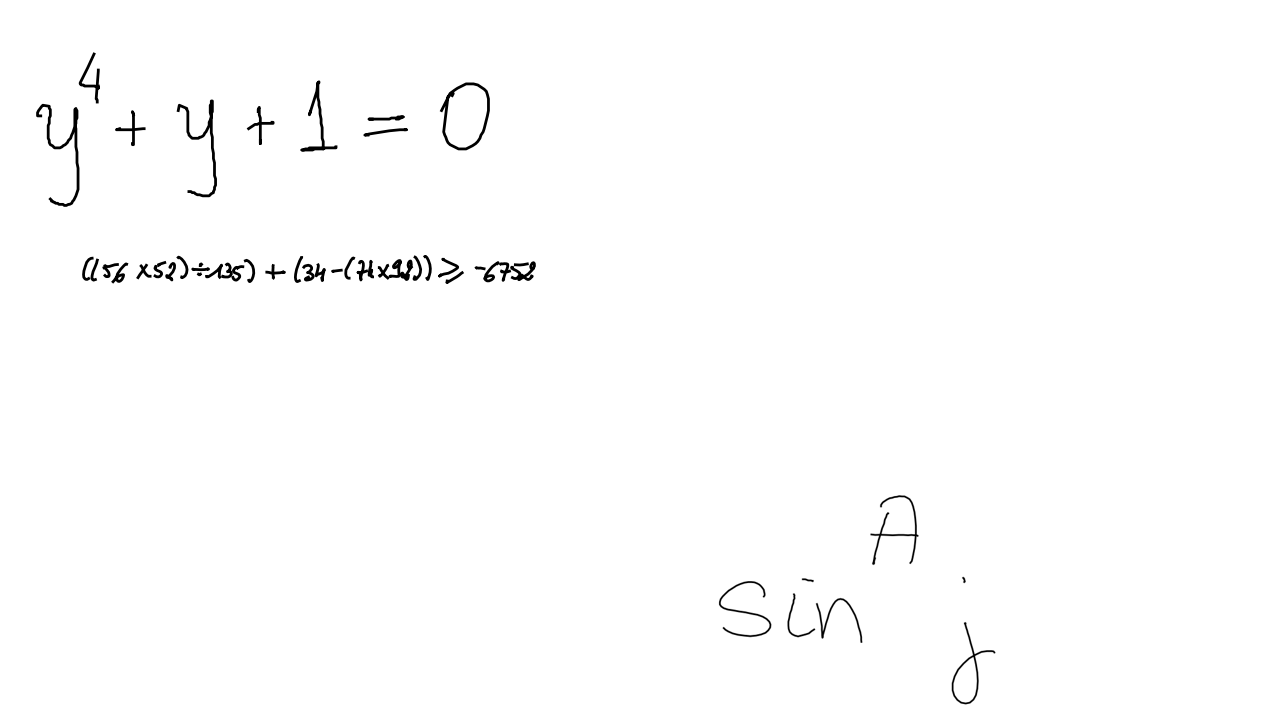 y⁴ + y + 1 = 0
((56 × 52) ÷ 135) + (34 - (71 × 98)) ≥ -6752
sin^A j